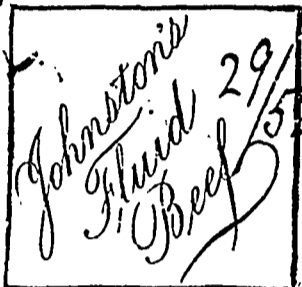 Johnston's
Fluid
Beef
29/